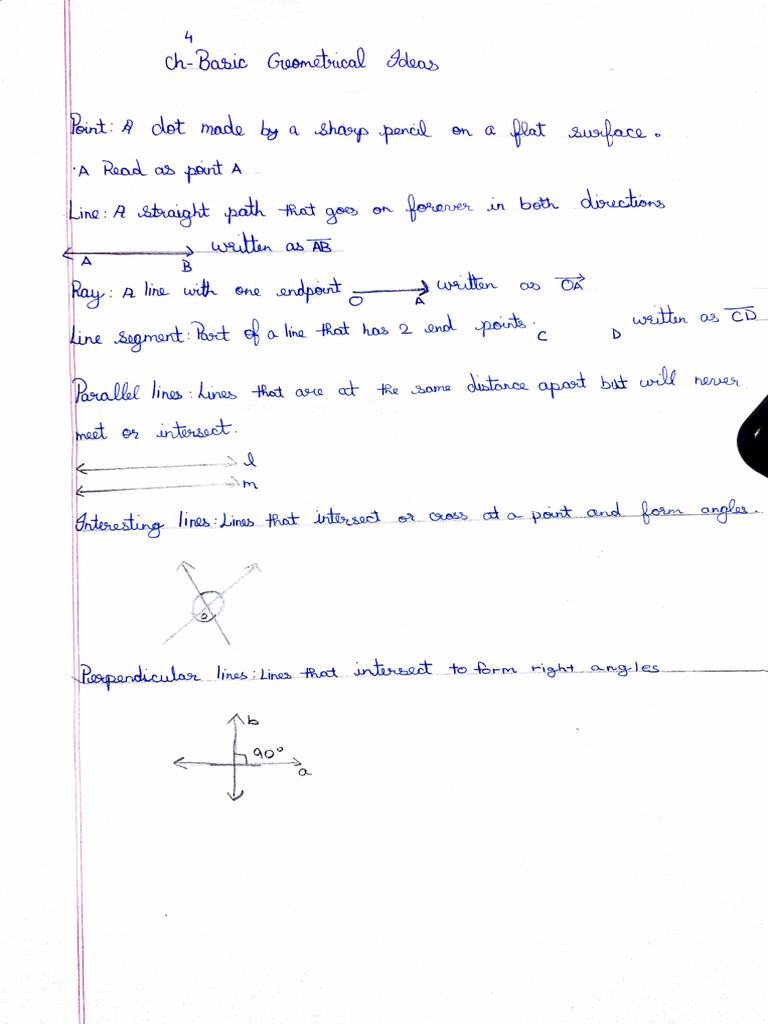 4
Ch-Basic Geometrical Ideas
Point: A dot made by a sharp pencil on a flat surface.
·A Read as point A
Line: A straight path that goes on forever in both directions
A B written as A̅B̅
Ray: A line with one endpoint O A written as O⃗A⃗
Line segment: Part of a line that has 2 end points. C D written as C̅D̅
Parallel lines: Lines that are at the same distance apart but will never
meet or intersect.
l
m
Interesting lines: Lines that intersect or cross at a point and form angles.
O
Perpendicular lines: Lines that intersect to form right angles
b
90°
a